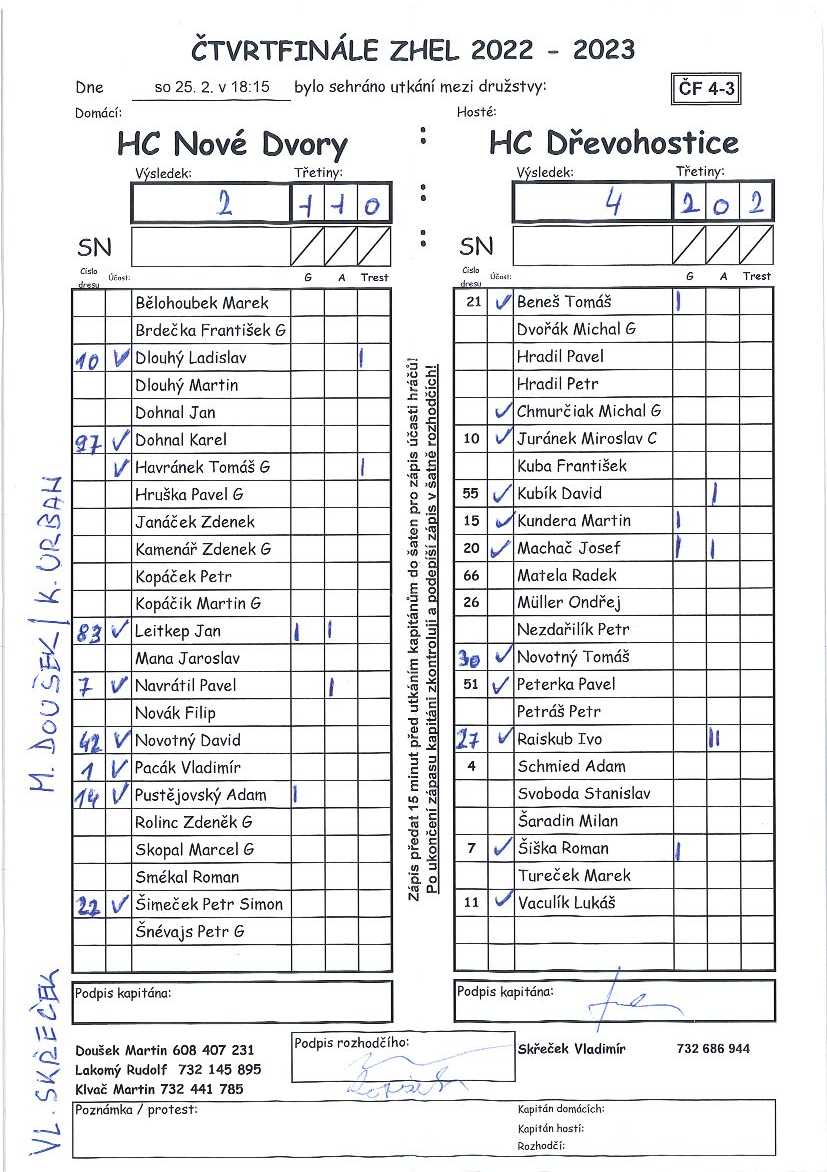 ČTVRTFINÁLE ZHEL 2022 - 2023
Dne so 25. 2. v 18:15 bylo sehráno utkání mezi družstvy: ČF 4-3
Domácí: Hosté:
HC Nové Dvory : HC Dřevohostice
Výsledek: Třetiny: Výsledek: Třetiny:
2 1 1 0 : 4 2 0 2
SN : SN
Číslo dresu Účast: G A Trest Číslo dresu Účast: G A Trest
Bělohoubek Marek 21 ✓ Beneš Tomáš |
Brdečka František G Dvořák Michal G
10 ✓ Dlouhý Ladislav | Hradil Pavel
Dlouhý Martin Hradil Petr
Dohnal Jan ✓ Chmurčiak Michal G
97 ✓ Dohnal Karel 10 ✓ Juránek Miroslav C
✓ Havránek Tomáš G | Kuba František
Hruška Pavel G 55 ✓ Kubík David |
Janáček Zdenek 15 ✓ Kundera Martin |
Kamenář Zdenek G 20 ✓ Machač Josef | |
Kopáček Petr 66 Matela Radek
Kopáčik Martin G 26 Müller Ondřej
83 ✓ Leitkep Jan | | Nezdařilík Petr
Mana Jaroslav 30 ✓ Novotný Tomáš
7 ✓ Navrátil Pavel | 51 ✓ Peterka Pavel
Novák Filip Petráš Petr
42 ✓ Novotný David 27 ✓ Raiskub Ivo ||
1 ✓ Pacák Vladimír 4 Schmied Adam
14 ✓ Pustějovský Adam | Svoboda Stanislav
Rolinc Zdeněk G Šaradin Milan
Skopal Marcel G 7 ✓ Šiška Roman |
Smékal Roman Tureček Marek
22 ✓ Šimeček Petr Simon 11 ✓ Vaculík Lukáš
Šnévajs Petr G
Zápis předat 15 minut před utkáním kapitánům do šaten pro zápis účasti hráčů!
Po ukončení zápasu kapitáni zkontrolují a podepíší zápis v šatně rozhodčích!
M. DOUŠEK / K. URBAN
VL. SKŘEČEK
Podpis kapitána: Podpis kapitána:
Doušek Martin 608 407 231 Podpis rozhodčího: Skřeček Vladimír 732 686 944
Lakomý Rudolf 732 145 895
Klvač Martin 732 441 785
Poznámka / protest: Kapitán domácích:
Kapitán hostí:
Rozhodčí: